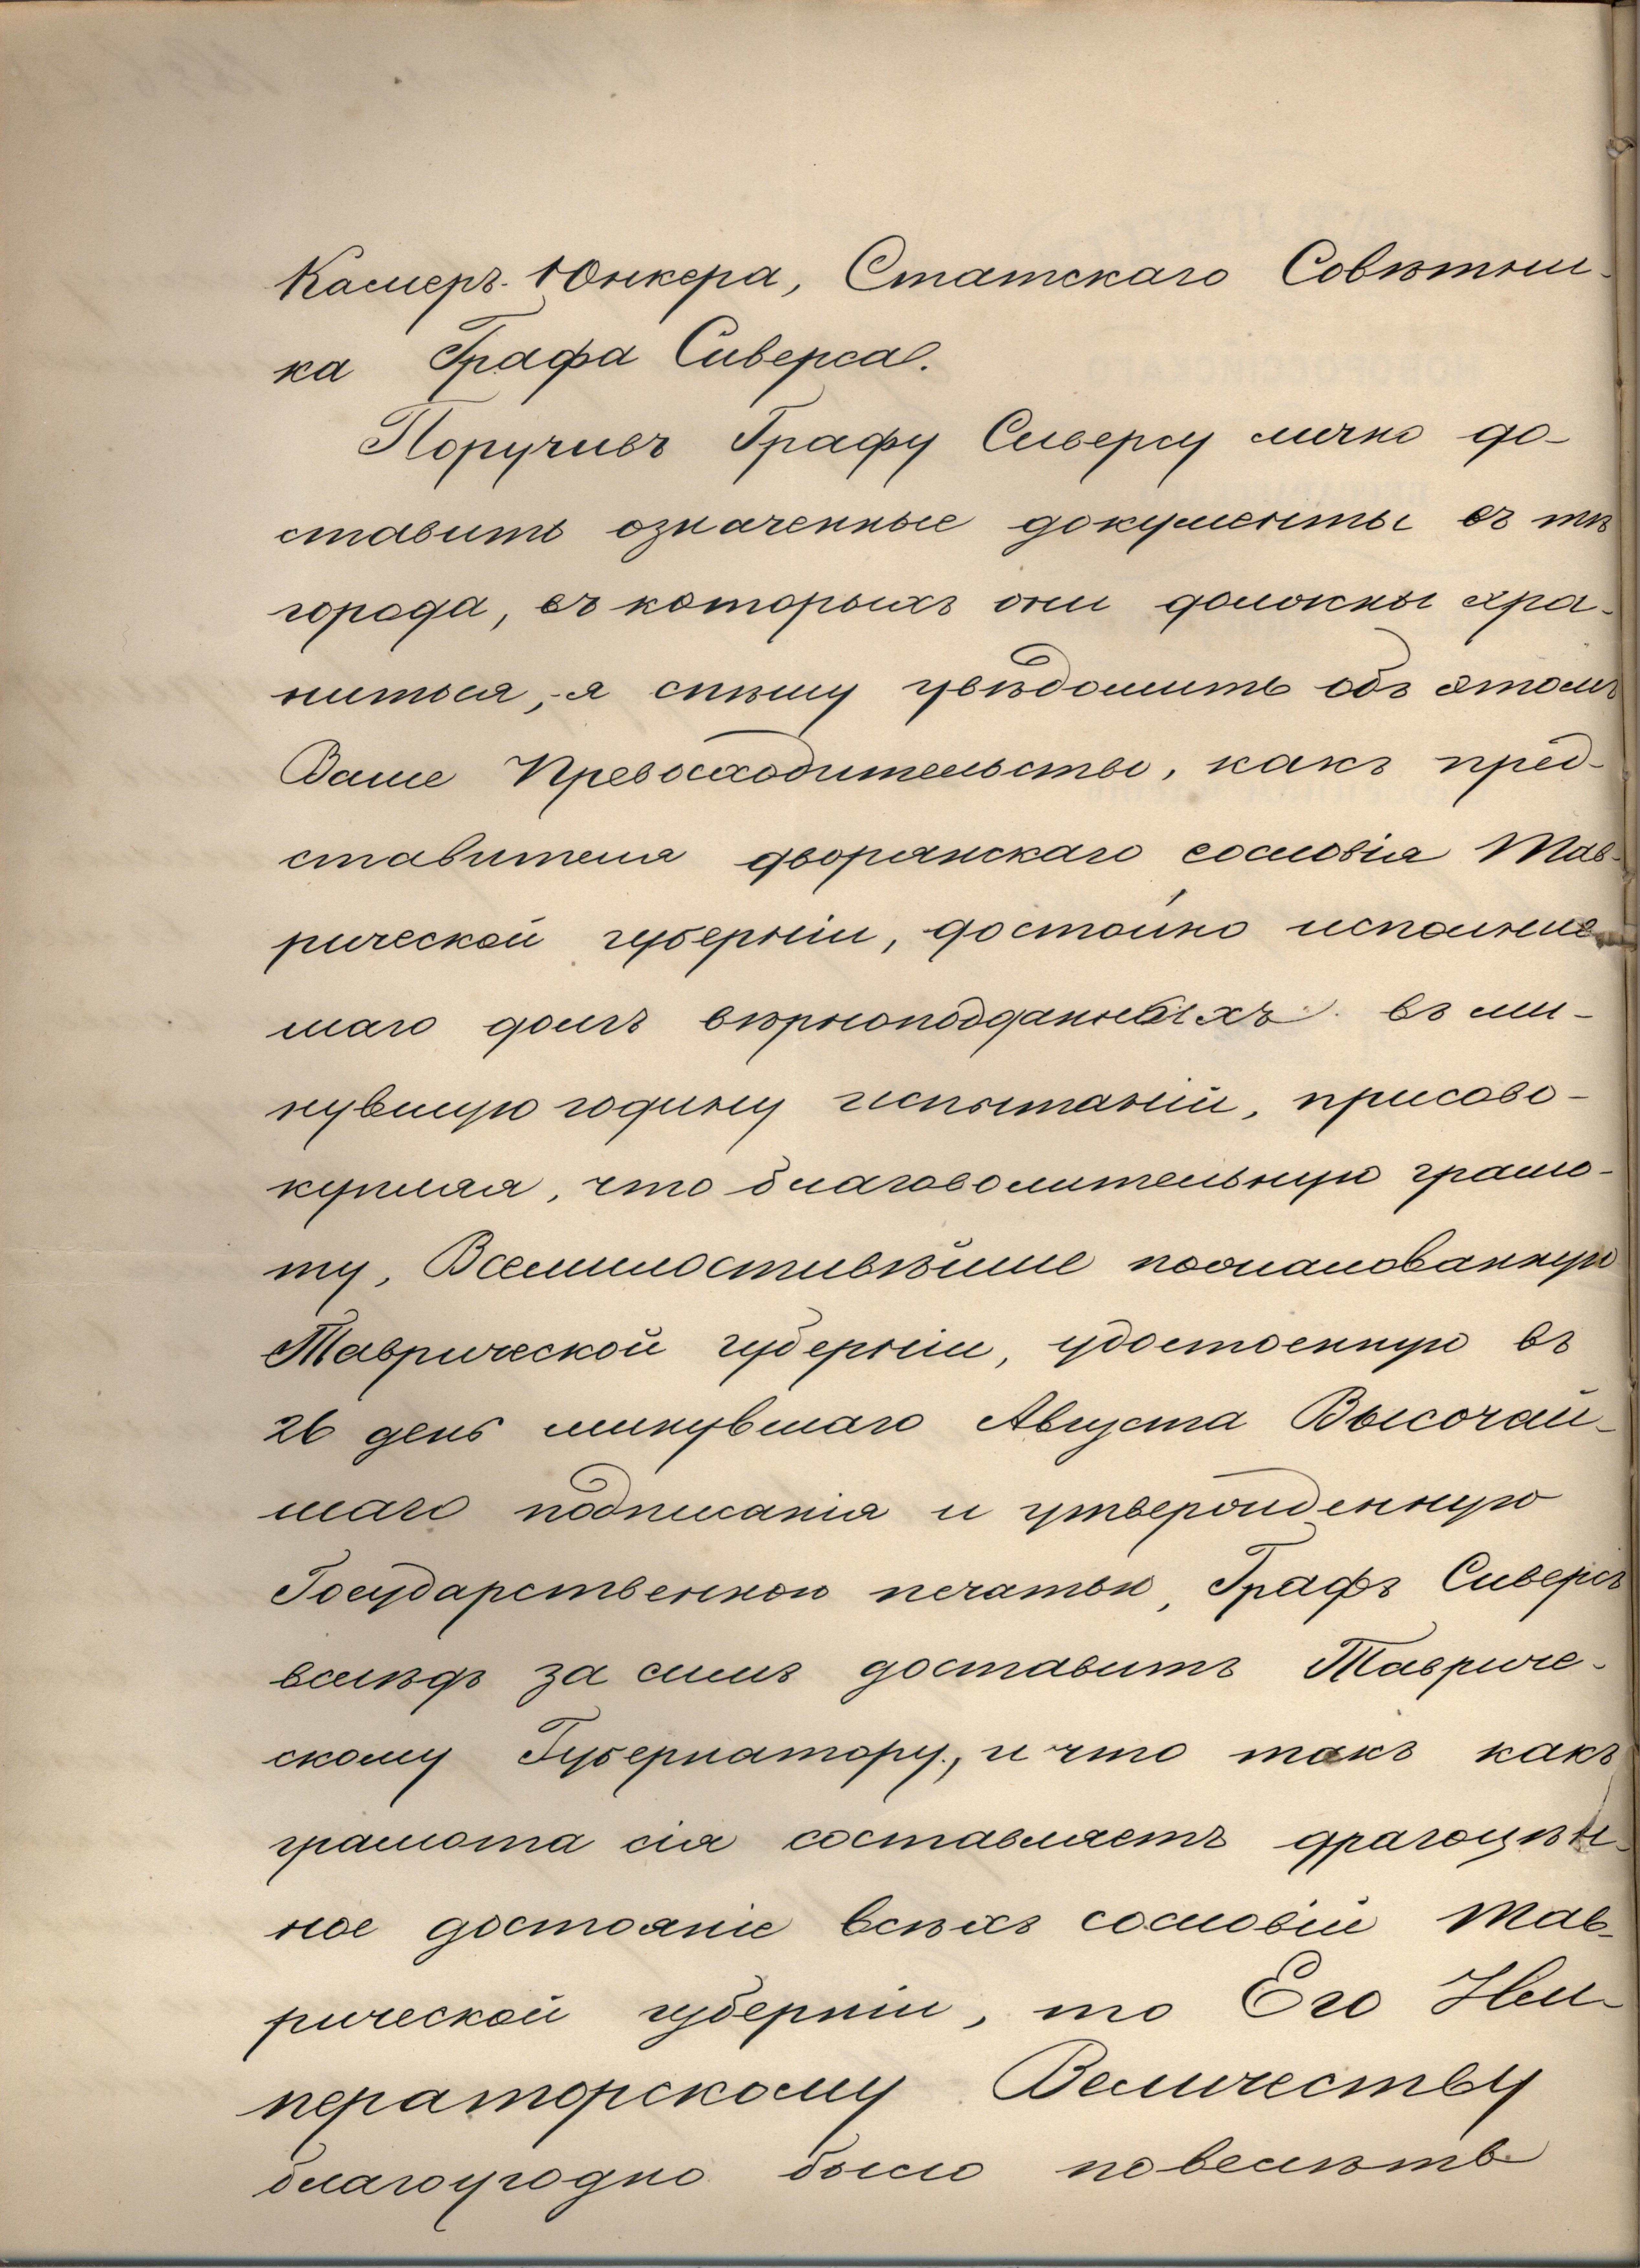 Камеръ-Юнкера, Статскаго Совѣтни-
ка Графа Сиверса.
Поручивъ Графу Сиверсу лично до-
ставить означенные документы въ тѣ
города, въ которыхъ они должны хра-
ниться, я спѣшу увѣдомить объ этомъ
Ваше Превосходительство, какъ пред-
ставителя дворянскаго сословія Тав-
рической губерніи, достойно исполнив-
шаго долгъ вѣрноподданныхъ въ ми-
нувшую годину испытаній, присово-
купляя, что благоволительную грамо-
ту, Всемилостивѣйше пожалованную
Таврической губерніи, удостоенную въ
26 день минувшаго Августа Высочай-
шаго подписанія и утвержденную
Государственною печатью, Графъ Сиверсъ
вслѣдъ за симъ доставитъ Тавриче-
скому Губернатору, и что такъ какъ
грамота сія составляетъ драгоцѣн-
ное достояніе всѣхъ сословій Тав-
рической губерніи, то Его Им-
ператорскому Величеству
благоугодно было повелѣть